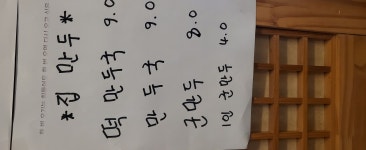 *집 만두*
떡 만두국 9.0
만 두국 9.0
군만두 8.0
1인 군만두 4.0